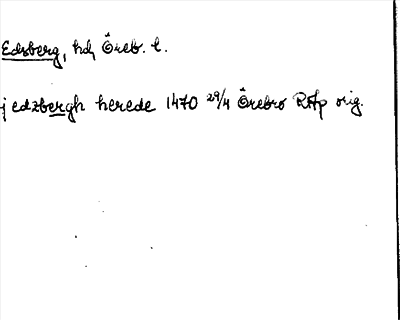 Edsberg, hd, Öreb. l.
j edzbergh herede 1470 29/4 Örebro RAp orig.